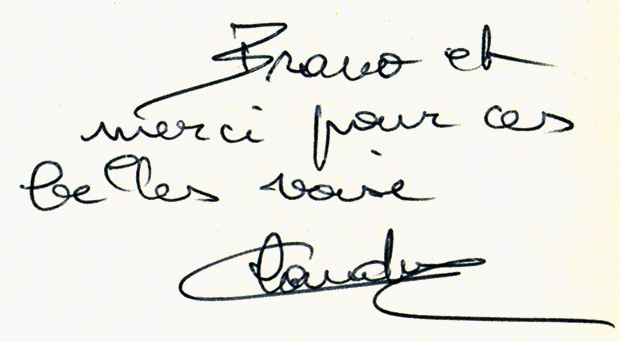 Bravo et
merci pour ces
belles voix
Claude